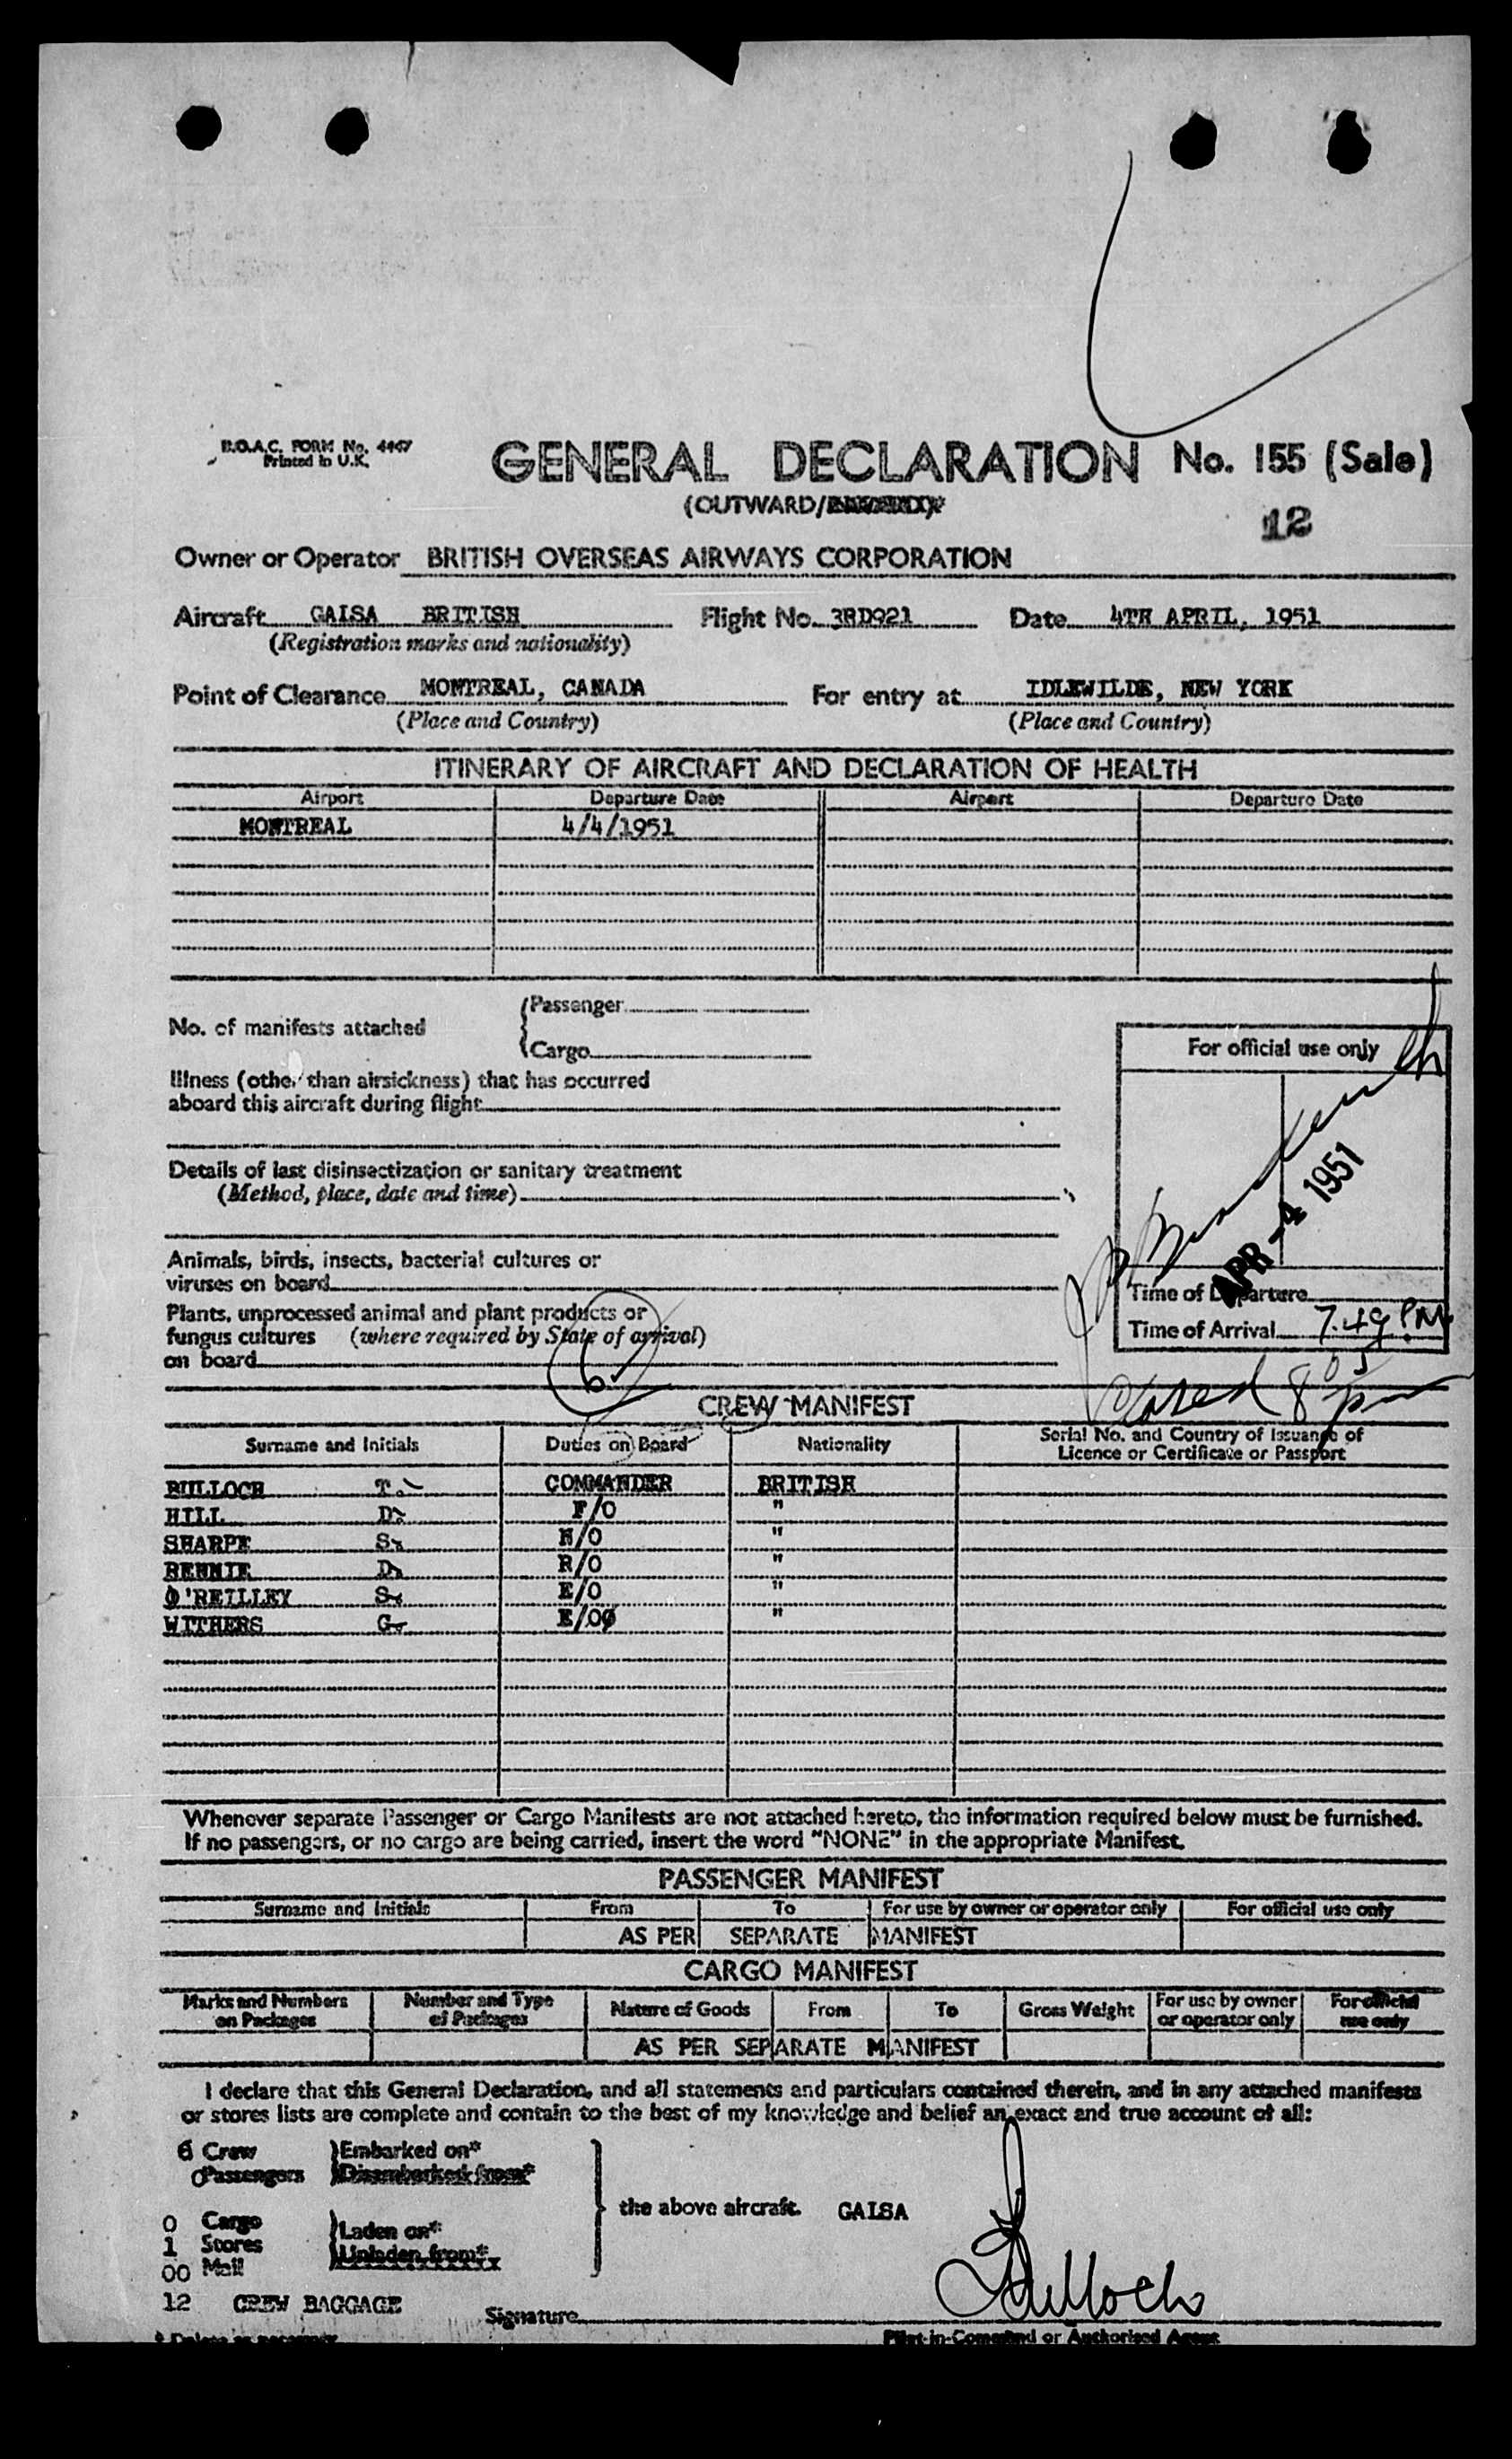 B.O.A.C. FORM No. 4447
Printed in U.K.
GENERAL DECLARATION No. 155 (Sale)
(OUTWARD/
12
Owner or Operator BRITISH OVERSEAS AIRWAYS CORPORATION
Aircraft GALSA BRITISH Flight No. 3RD921 Date 4TH APRIL, 1951
(Registration marks and nationality)
Point of Clearance MONTREAL, CANADA For entry at IDLEWILDE, NEW YORK
(Place and Country) (Place and Country)
ITINERARY OF AIRCRAFT AND DECLARATION OF HEALTH
Airport Departure Date Airport Departure Date
MONTREAL 4/4/1951
No. of manifests attached
Passenger
Cargo
For official use only
Illness (other than airsickness) that has occurred
aboard this aircraft during flight
APR -4 1951
Details of last disinsectization or sanitary treatment
(Method, place, date and time)
Animals, birds, insects, bacterial cultures or
viruses on board
Time of Departure
Plants, unprocessed animal and plant products or
fungus cultures (where required by State of arrival)
on board
Time of Arrival 7.49 PM
6
Closed 8 05 pm
CREW MANIFEST
Surname and Initials Duties on Board Nationality Serial No. and Country of Issuance of
Licence or Certificate or Passport
BULLOCH T. COMMANDER BRITISH
HILL D. F/O "
SHARPE S. N/O "
RENNIE D. R/O "
O'REILLEY S. E/O "
WITHERS G. E/O "
Whenever separate Passenger or Cargo Manifests are not attached hereto, the information required below must be furnished.
If no passengers, or no cargo are being carried, insert the word "NONE" in the appropriate Manifest.
PASSENGER MANIFEST
Surname and Initials From To For use by owner or operator only For official use only
AS PER SEPARATE MANIFEST
CARGO MANIFEST
Marks and Numbers on Packages Number and Type of Packages Nature of Goods From To Gross Weight For use by owner or operator only For official use only
AS PER SEPARATE MANIFEST
I declare that this General Declaration, and all statements and particulars contained therein, and in any attached manifests
or stores lists are complete and contain to the best of my knowledge and belief an exact and true account of all:
6 Crew Embarked on*
0 Passengers Disembarked from*
the above aircraft. GALSA
0 Cargo Laden on*
1 Stores Unladen from*
00 Mail
12 CREW BAGGAGE
Signature TBulloch
* Delete as necessary
Pilot-in-Command or Authorised Agent